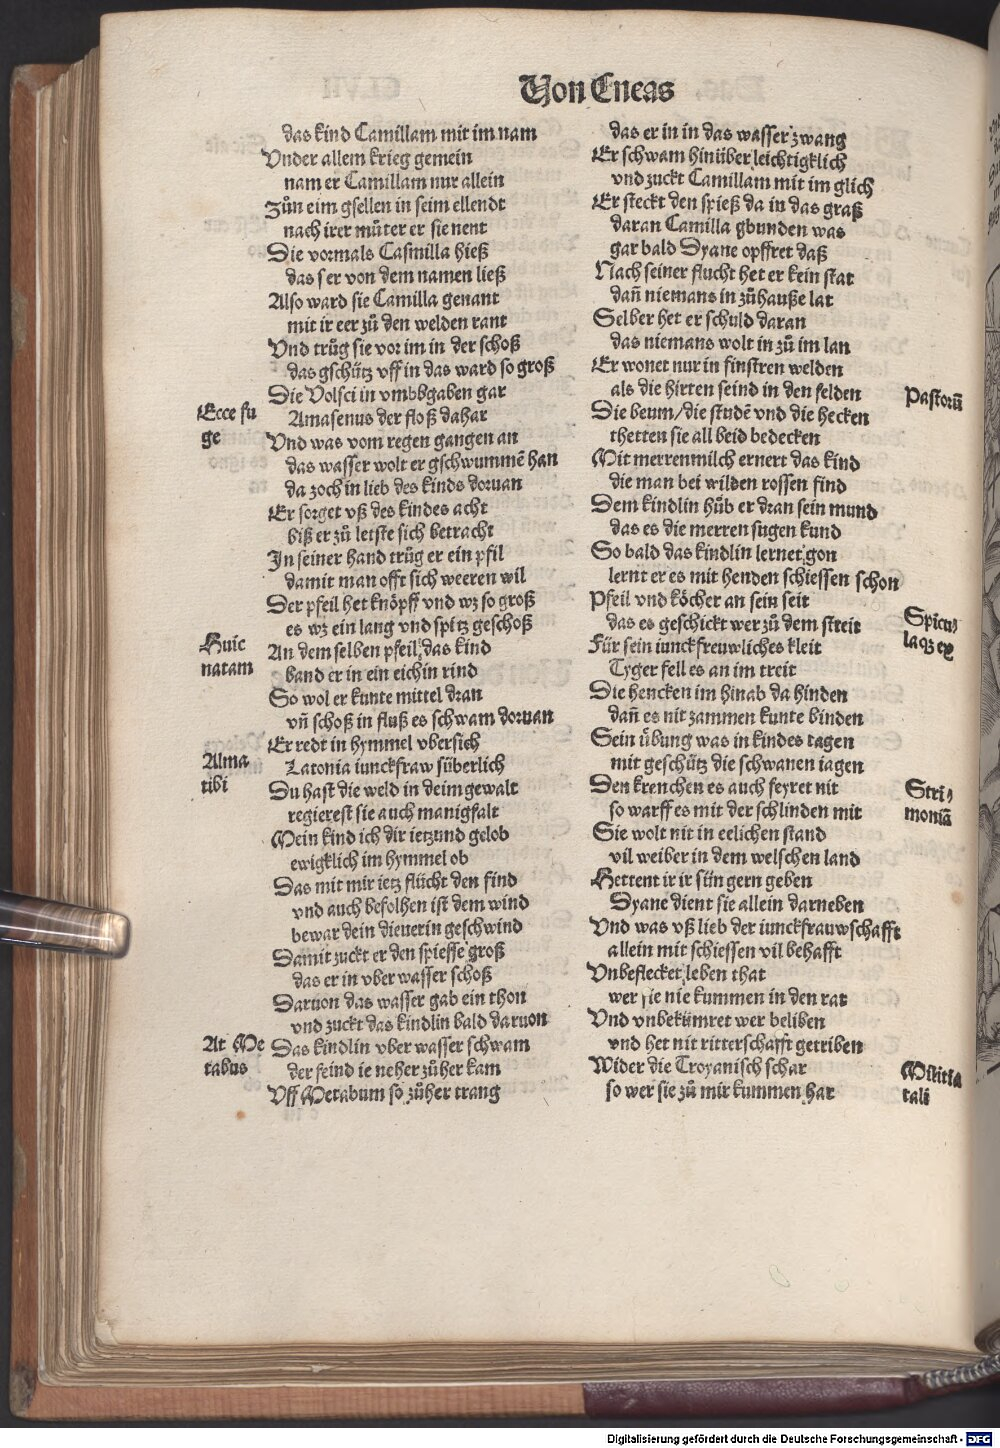 Von Eneas
das kind Camillam mit im nam
Vnder allem krieg gemein
nam er Camillam nur allein
Zůn eim gsellen in seim ellendt
nach irer můter er sie nent
Die vormals Casmilla hieß
das s er von dem namen ließ
Also ward sie Camilla genant
mit ir eer zů den welden rant
Vnd trůg sie vor im in der schoß
das gschütz vff in das ward so groß
Die Volsci in vmbbgaben gar
Ecce fu
ge
Amasenus der floß dahar
Vnd was vom regen gangen an
das wasser wolt er gschwummē han
da zoch in lieb des kinds doruan
Er sorget vß des kindes acht
biß er zů letste sich betracht
In seiner hand trůg er ein pfil
damit man offt sich weeren wil
Der pfeil het knöpff vnd wz so groß
es wz ein lang vnd spitz geschoß
Huic
natam
An dem selben pfeil das kind
band er in ein eichin rind
So wol er kunte mittel dran
vñ schoß in fluß es schwam doruan
Er redt in hymmel vbersich
Alma
tibi
Latonia iunckfraw süberlich
Du hast die weld in deim gewalt
regierest sie auch manigfalt
Mein kind ich dir ietzund gelob
ewigklich im hymmel ob
Das mit mir ietz flücht den find
vnd auch befolhen ist dem wind
bewar dein dienerin geschwind
Damit zuckt er den spiesse groß
das er in vber wasser schoß
Daruon das wasser gab ein thon
vnd zuckt das kindlin bald daruon
At Me
tabus
Das kindlin vber wasser schwam
der feind ie neher zůher kam
Vff Metabum so zůher trang
das er in in das wasser zwang
Er schwam hinüber leichtigklich
vnd zuckt Camillam mit im glich
Er steckt den spieß da in das graß
daran Camilla gbunden was
gar bald Dyane opffret daß
Nach seiner flucht het er kein stat
dañ niemans in zůhauße lat
Selber het er schuld daran
das niemans wolt in zů im lan
Er wonet nur in finstren welden
als die hirten seind in den felden
Pastorū
Die beum/die studē vnd die hecken
thetten sie all beid bedecken
Mit merrenmilch ernert das kind
die man bei wilden rossen find
Dem kindlin hůb er dran sein mund
das es die merren sugen kund
So bald das kindlin lernet gon
lernt er es mit henden schiessen schon
Pfeil vnd köcher an sein seit
das es geschickt wer zů dem streit
Spicu
laqz ex
Für sein iunckfreuwliches kleit
Tyger fell es an im treit
Die hencken im hinab da hinden
dañ es nit zammen kunte binden
Sein übung was in kindes tagen
mit geschütz die schwanen iagen
Den krenchen es auch feyret nit
Stri,
moniā
so warff es mit der schlinden mit
Sie wolt nit in eelichen stand
vil weiber in dem welschen land
Hettent ir ir sün gern geben
Dyane dient sie allein darneben
Vnd was vß lieb der iunckfrauwschafft
allein mit schiessen vil behafft
Vnbeflecket leben that
wer sie nie kummen in den rat
Vnd vnbekümret wer beliben
vnd het nit ritterschafft getriben
Wider die Troyanisch schar
Militia
tali
so wer sie zů mir kummen har
Digitalisierung gefördert durch die Deutsche Forschungsgemeinschaft - DFG